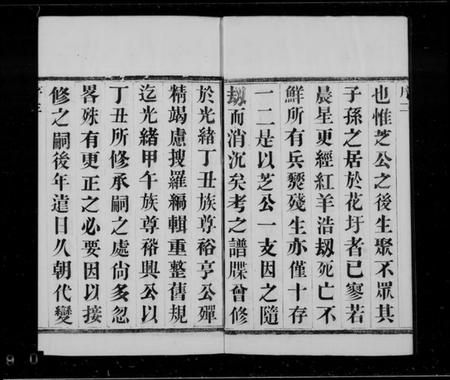 序二
也惟芝公之後生聚不眾其
子孫之居於花圩者已寥若
晨星更經紅羊浩刼死亡不
鮮所有兵燹殘生亦僅十存
一二是以芝公一支因之隨
刼而消沉矣考之譜牒曾修
於光緒丁丑族尊裕亨公殫
精竭慮搜羅編輯重整舊規
迄光緒甲午族尊裕興公以
丁丑所修承嗣之處尙多忽
畧殊有更正之必要因以接
修之嗣後年遠日久朝代變